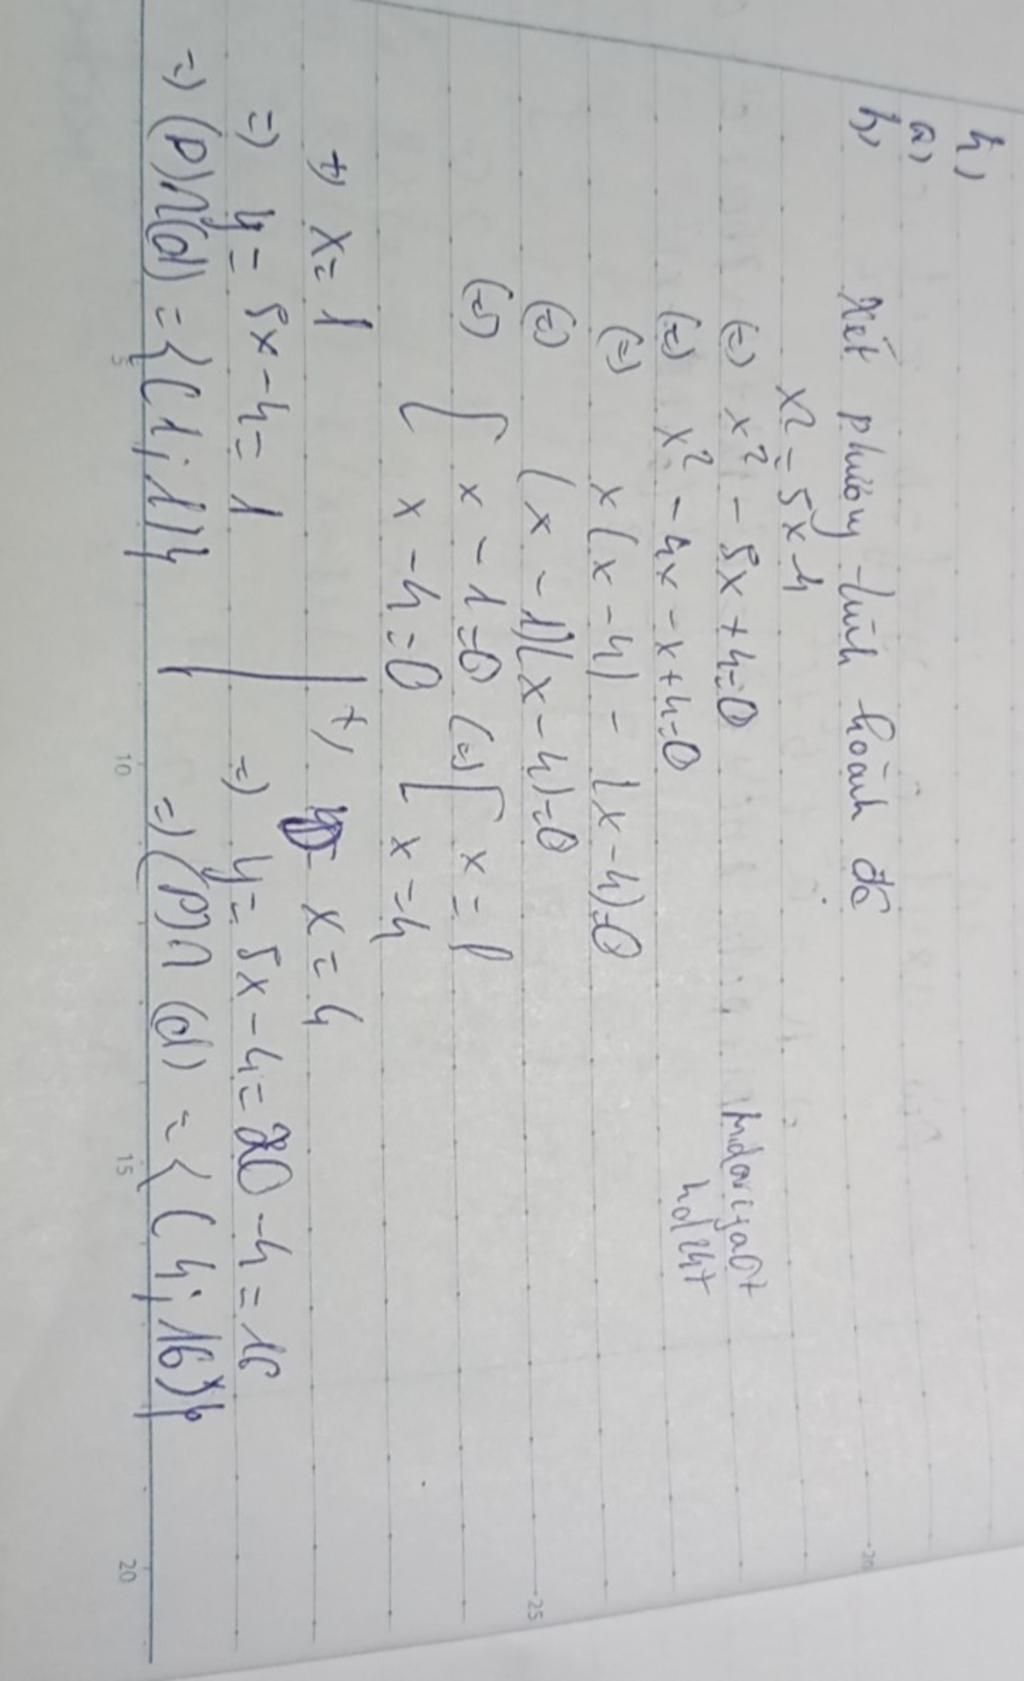 4,
a,
b, Xét phương trình hoành độ
x² = 5x - 4
(=) x² - 5x + 4 = 0
(=) x² - 4x - x + 4 = 0
(=) x(x - 4) - (x - 4) = 0
(=) (x - 1)(x - 4) = 0
(=) [ x - 1 = 0 (=) [ x = 1
x - 4 = 0 x = 4
+, x = 1
=) y = 5x - 4 = 1
=) (P)∩(d) = {(1; 1)}
+, x = 4
=) y = 5x - 4 = 20 - 4 = 16
=) (P)∩(d) = {(4; 16)}
5
10
15
20
25
20